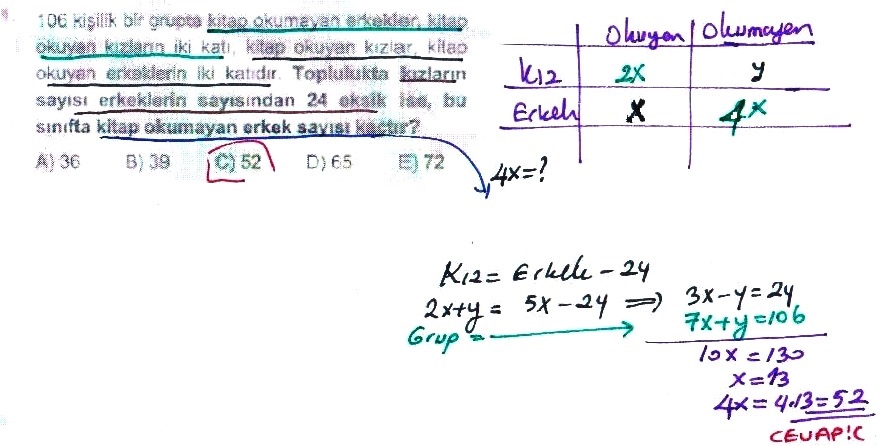 106 kişilik bir grupta kitap okumayan erkekler, kitap
okuyan kızların iki katı, kitap okuyan kızlar, kitap
okuyan erkeklerin iki katıdır. Toplulukta kızların
sayısı erkeklerin sayısından 24 eksik ise, bu
sınıfta kitap okumayan erkek sayısı kaçtır?
A) 36 B) 39 C) 52 D) 65 E) 72
Okuyan Okumayan
Kız 2x y
Erkek x 4x
4x=?
Kız = Erkek - 24
2x+y = 5x-24 => 3x-y=24
Grup = 7x+y=106
10x = 130
x=13
4x= 4.13=52
CEVAP:C